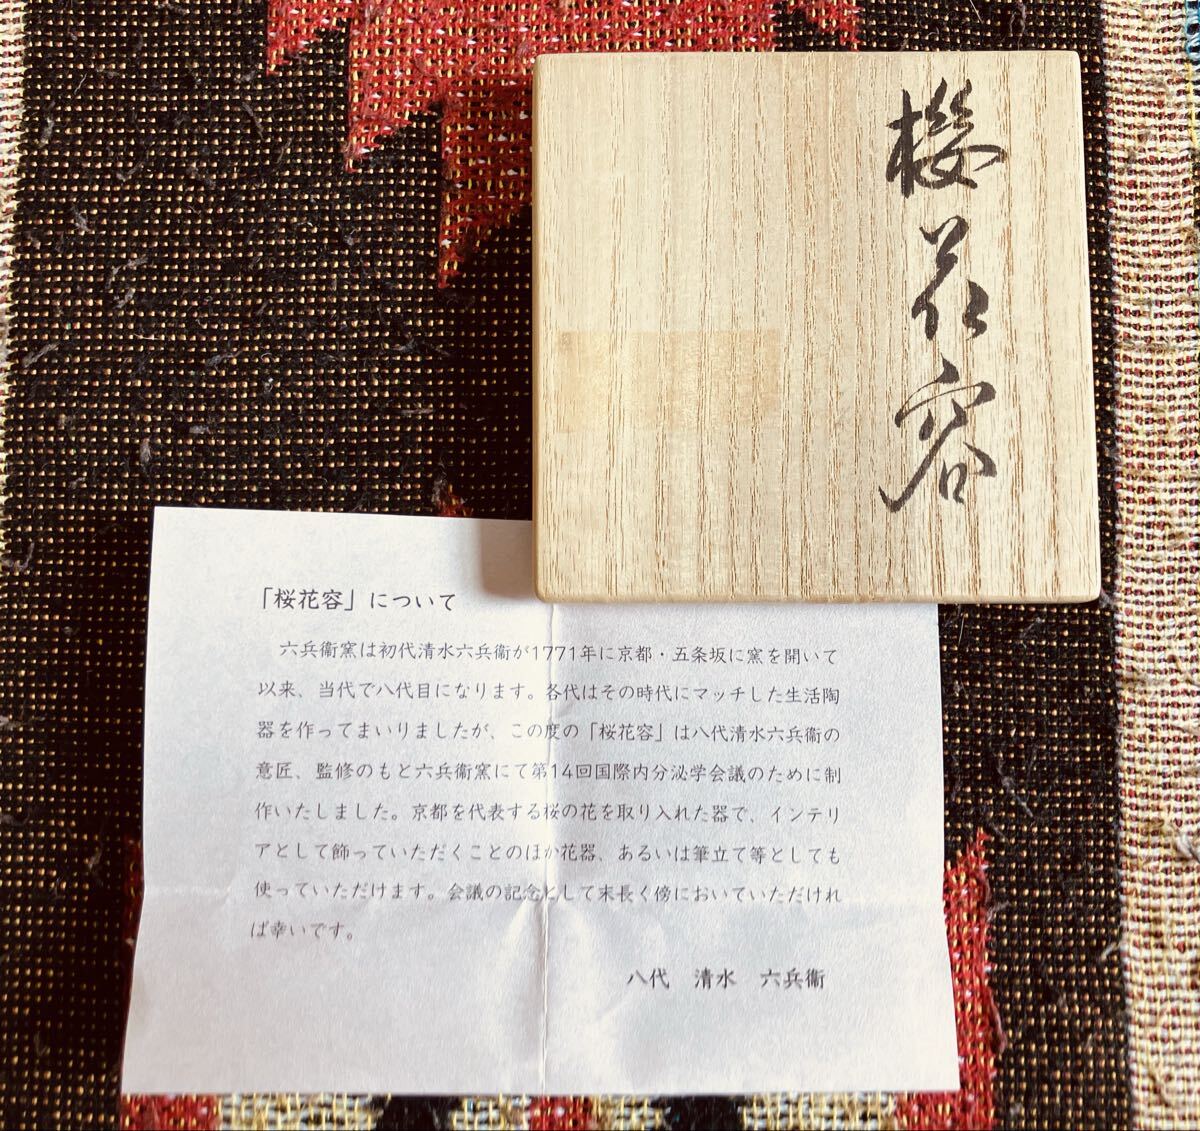 櫻花容
「桜花容」について
六兵衞窯は初代清水六兵衞が1771年に京都・五条坂に窯を開いて
以来、当代で八代目になります。各代はその時代にマッチした生活陶
器を作ってまいりましたが、この度の「桜花容」は八代清水六兵衞の
意匠、監修のもと六兵衞窯にて第14回国際内分泌学会議のために制
作いたしました。京都を代表する桜の花を取り入れた器で、インテリ
アとして飾っていただくことのほか花器、あるいは筆立て等としても
使っていただけます。会議の記念として末長く傍においていただけれ
ば幸いです。
八代　清水　六兵衞